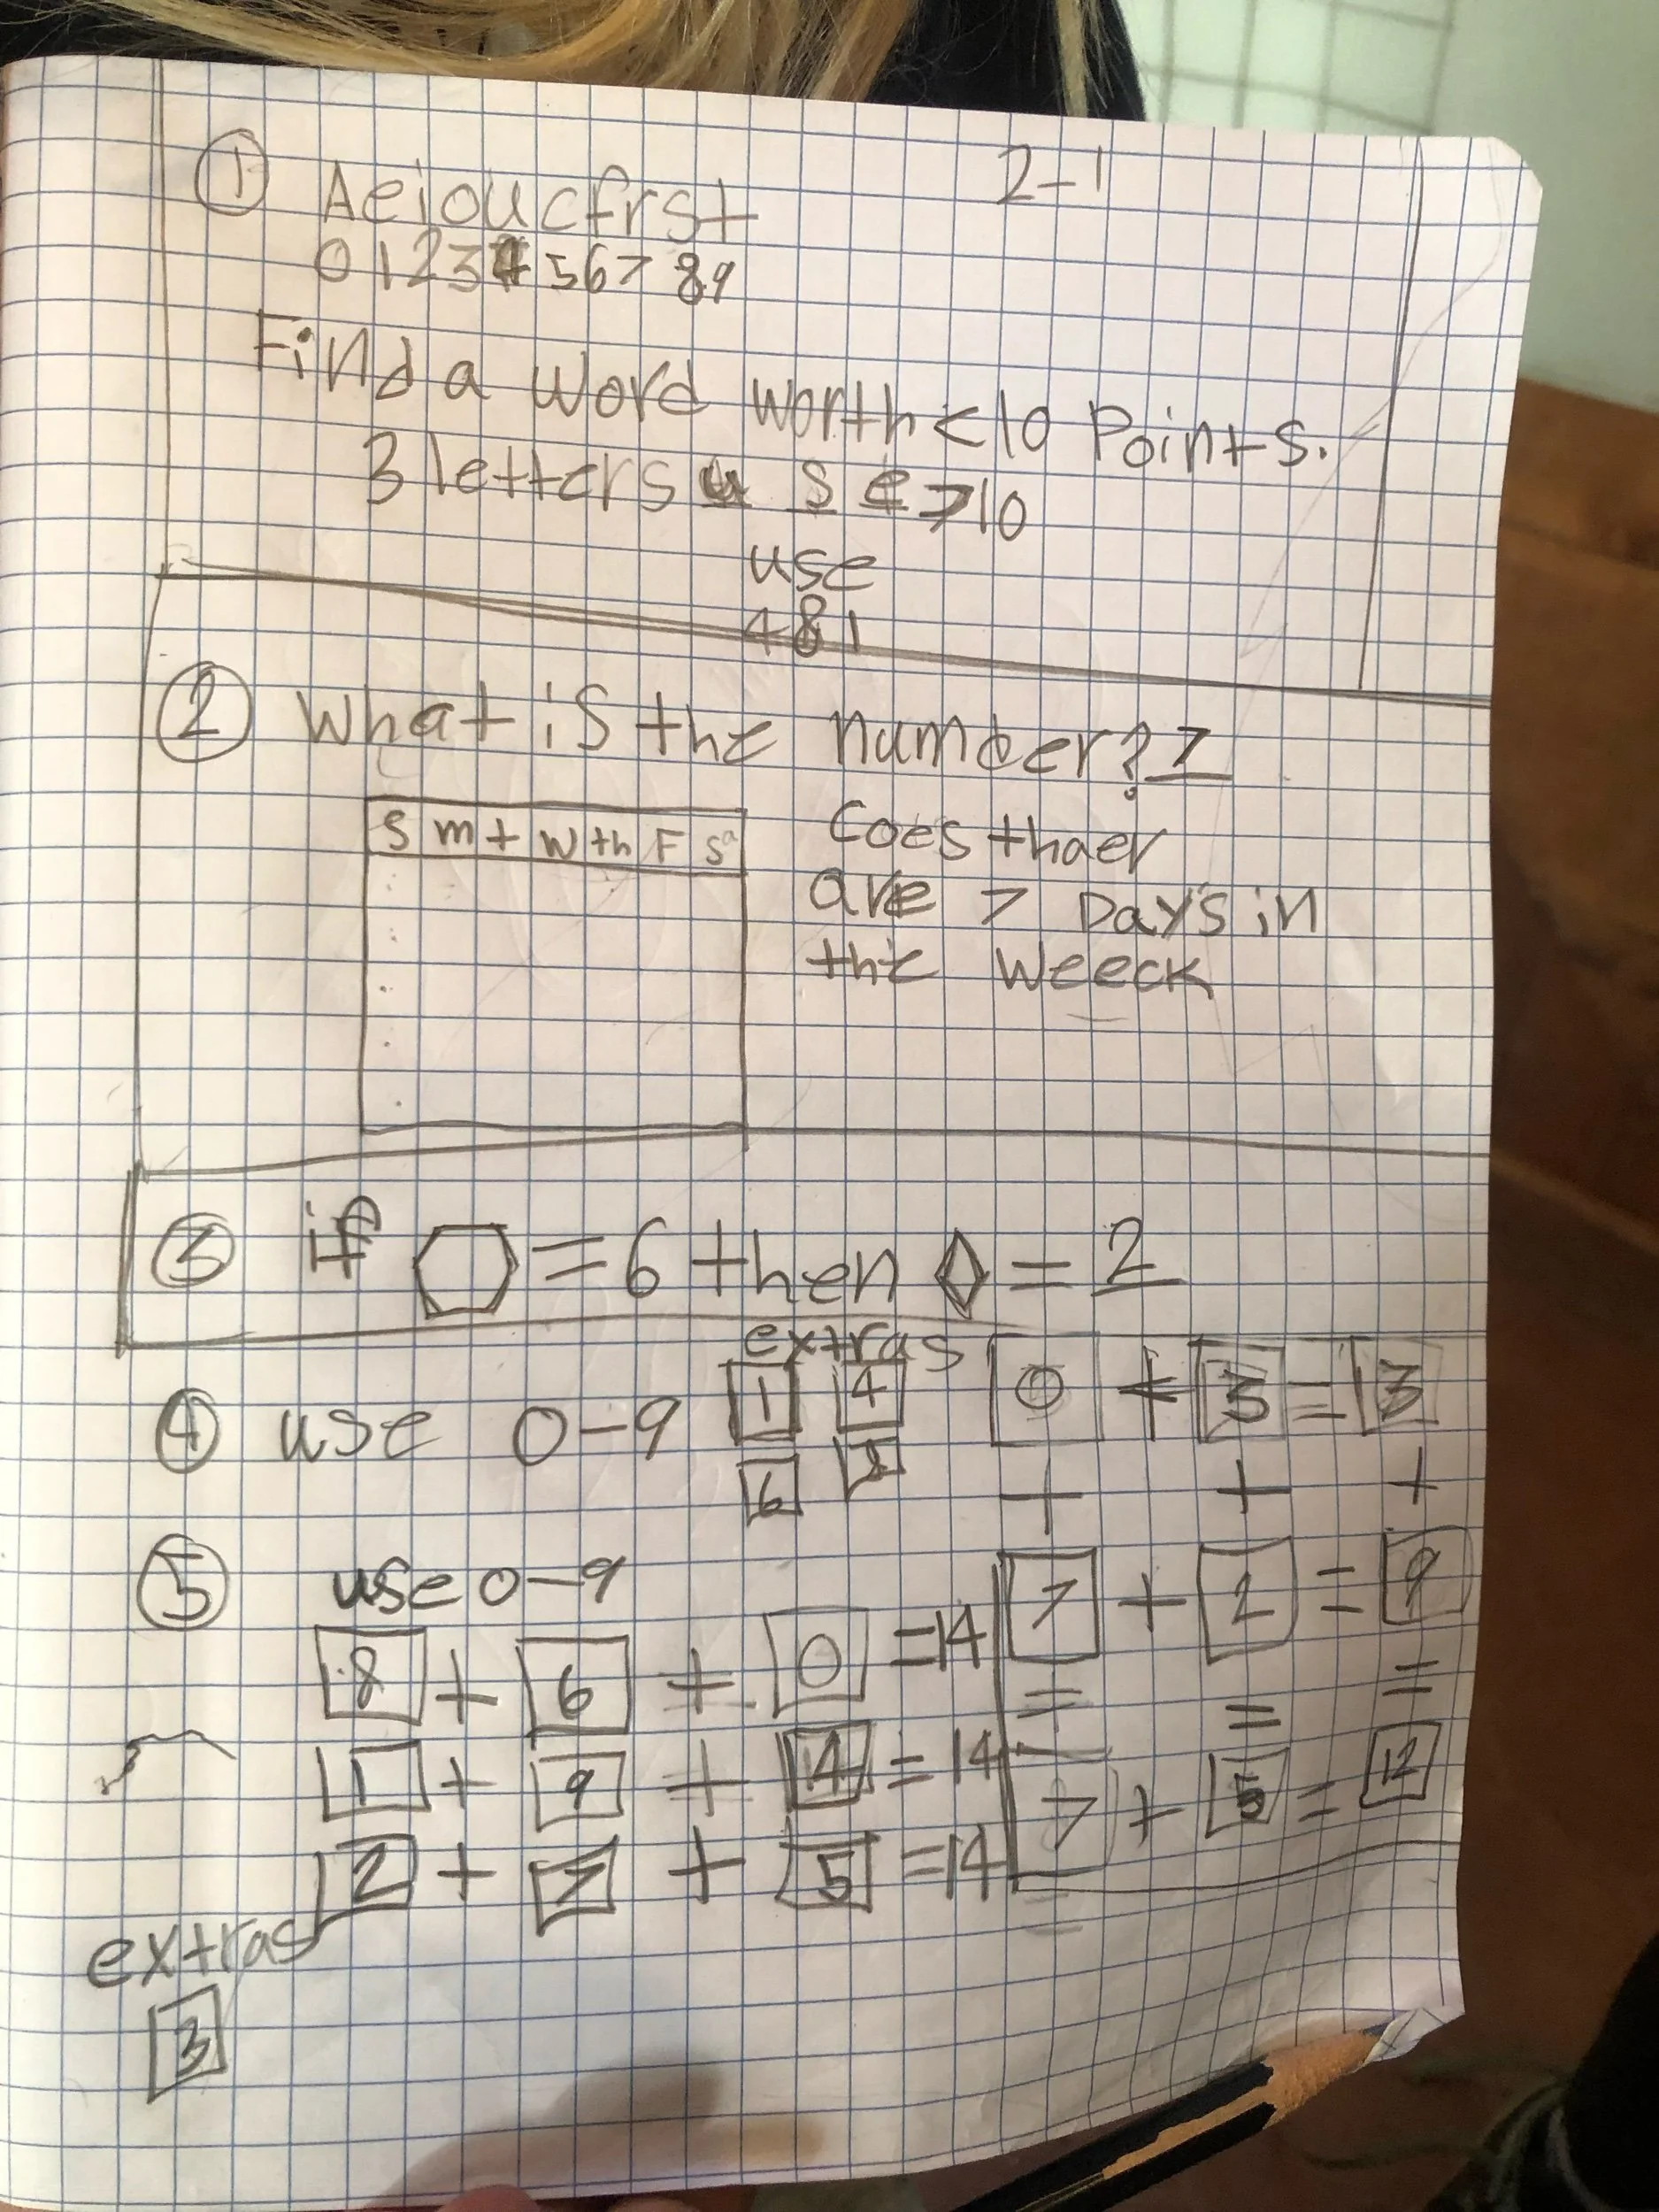 2-1
① Aeioucfrst
0 1 2 3 4 5 6 7 8 9
Find a word worth < 10 Points.
3 letters u s e > 10
use
4 8 1
② What is the number? 7
S m t W th F Sa
Coes thaer
are 7 Days in
the Weeck
③ if ⬡ = 6 then ◊ = 2
extras
④ use 0-9 1 4
6 8
0 + 3 = 3
+ + +
7 + 2 = 9
= = =
7 + 5 = 12
⑤ use 0-9
8 + 6 + 0 = 14
1 + 9 + 4 = 14
2 + 7 + 5 = 14
extras
3